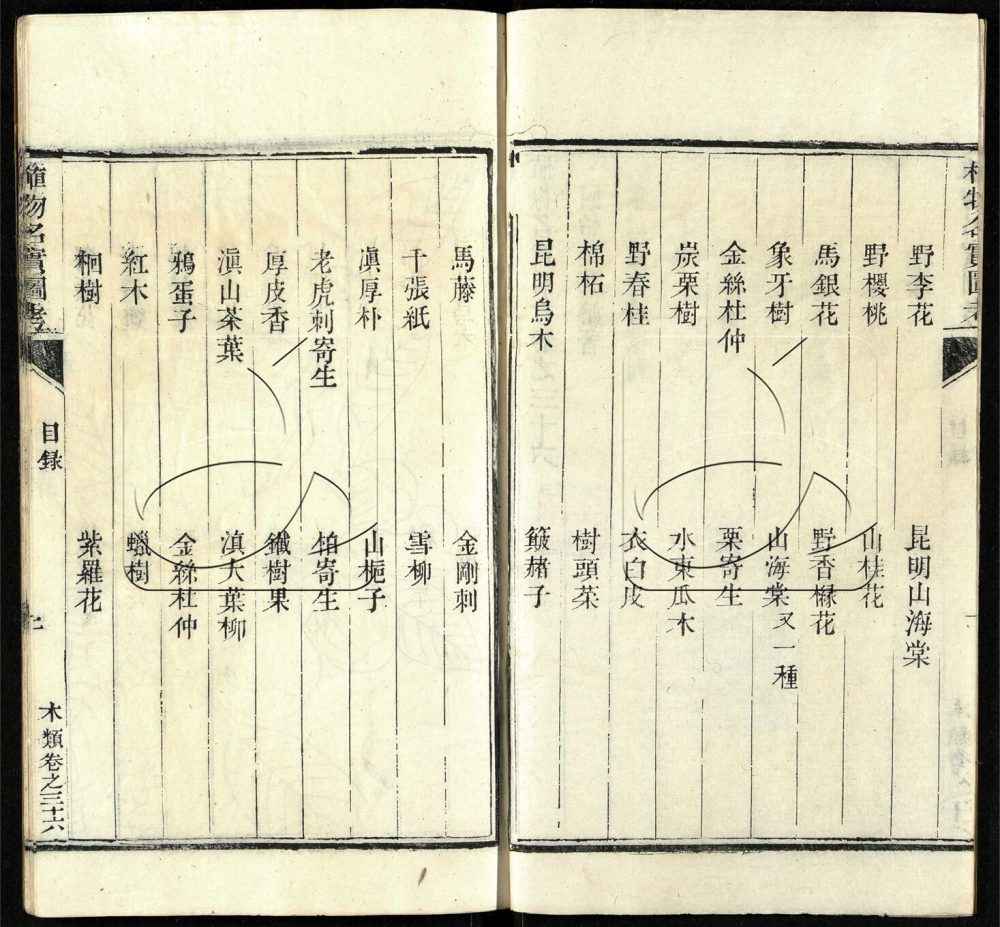 植物名實圖考
野李花 昆明山海棠
野櫻桃 山桂花
馬銀花 野香橼花
象牙樹 山海棠又一種
金絲杜仲 栗寄生
炭栗樹 水東瓜木
野春桂 衣白皮
棉柘 樹頭菜
昆明烏木 簸赭子
馬藤 金剛刺
千張紙 雪柳
滇厚朴 山梔子
老虎刺寄生 柏寄生
厚皮香 鐵樹果
滇山茶葉 滇大葉柳
鴉蛋子 金絲杜仲
紅木 蠟樹
梱樹 紫羅花
植物名實圖考 目録 木類卷之三十六